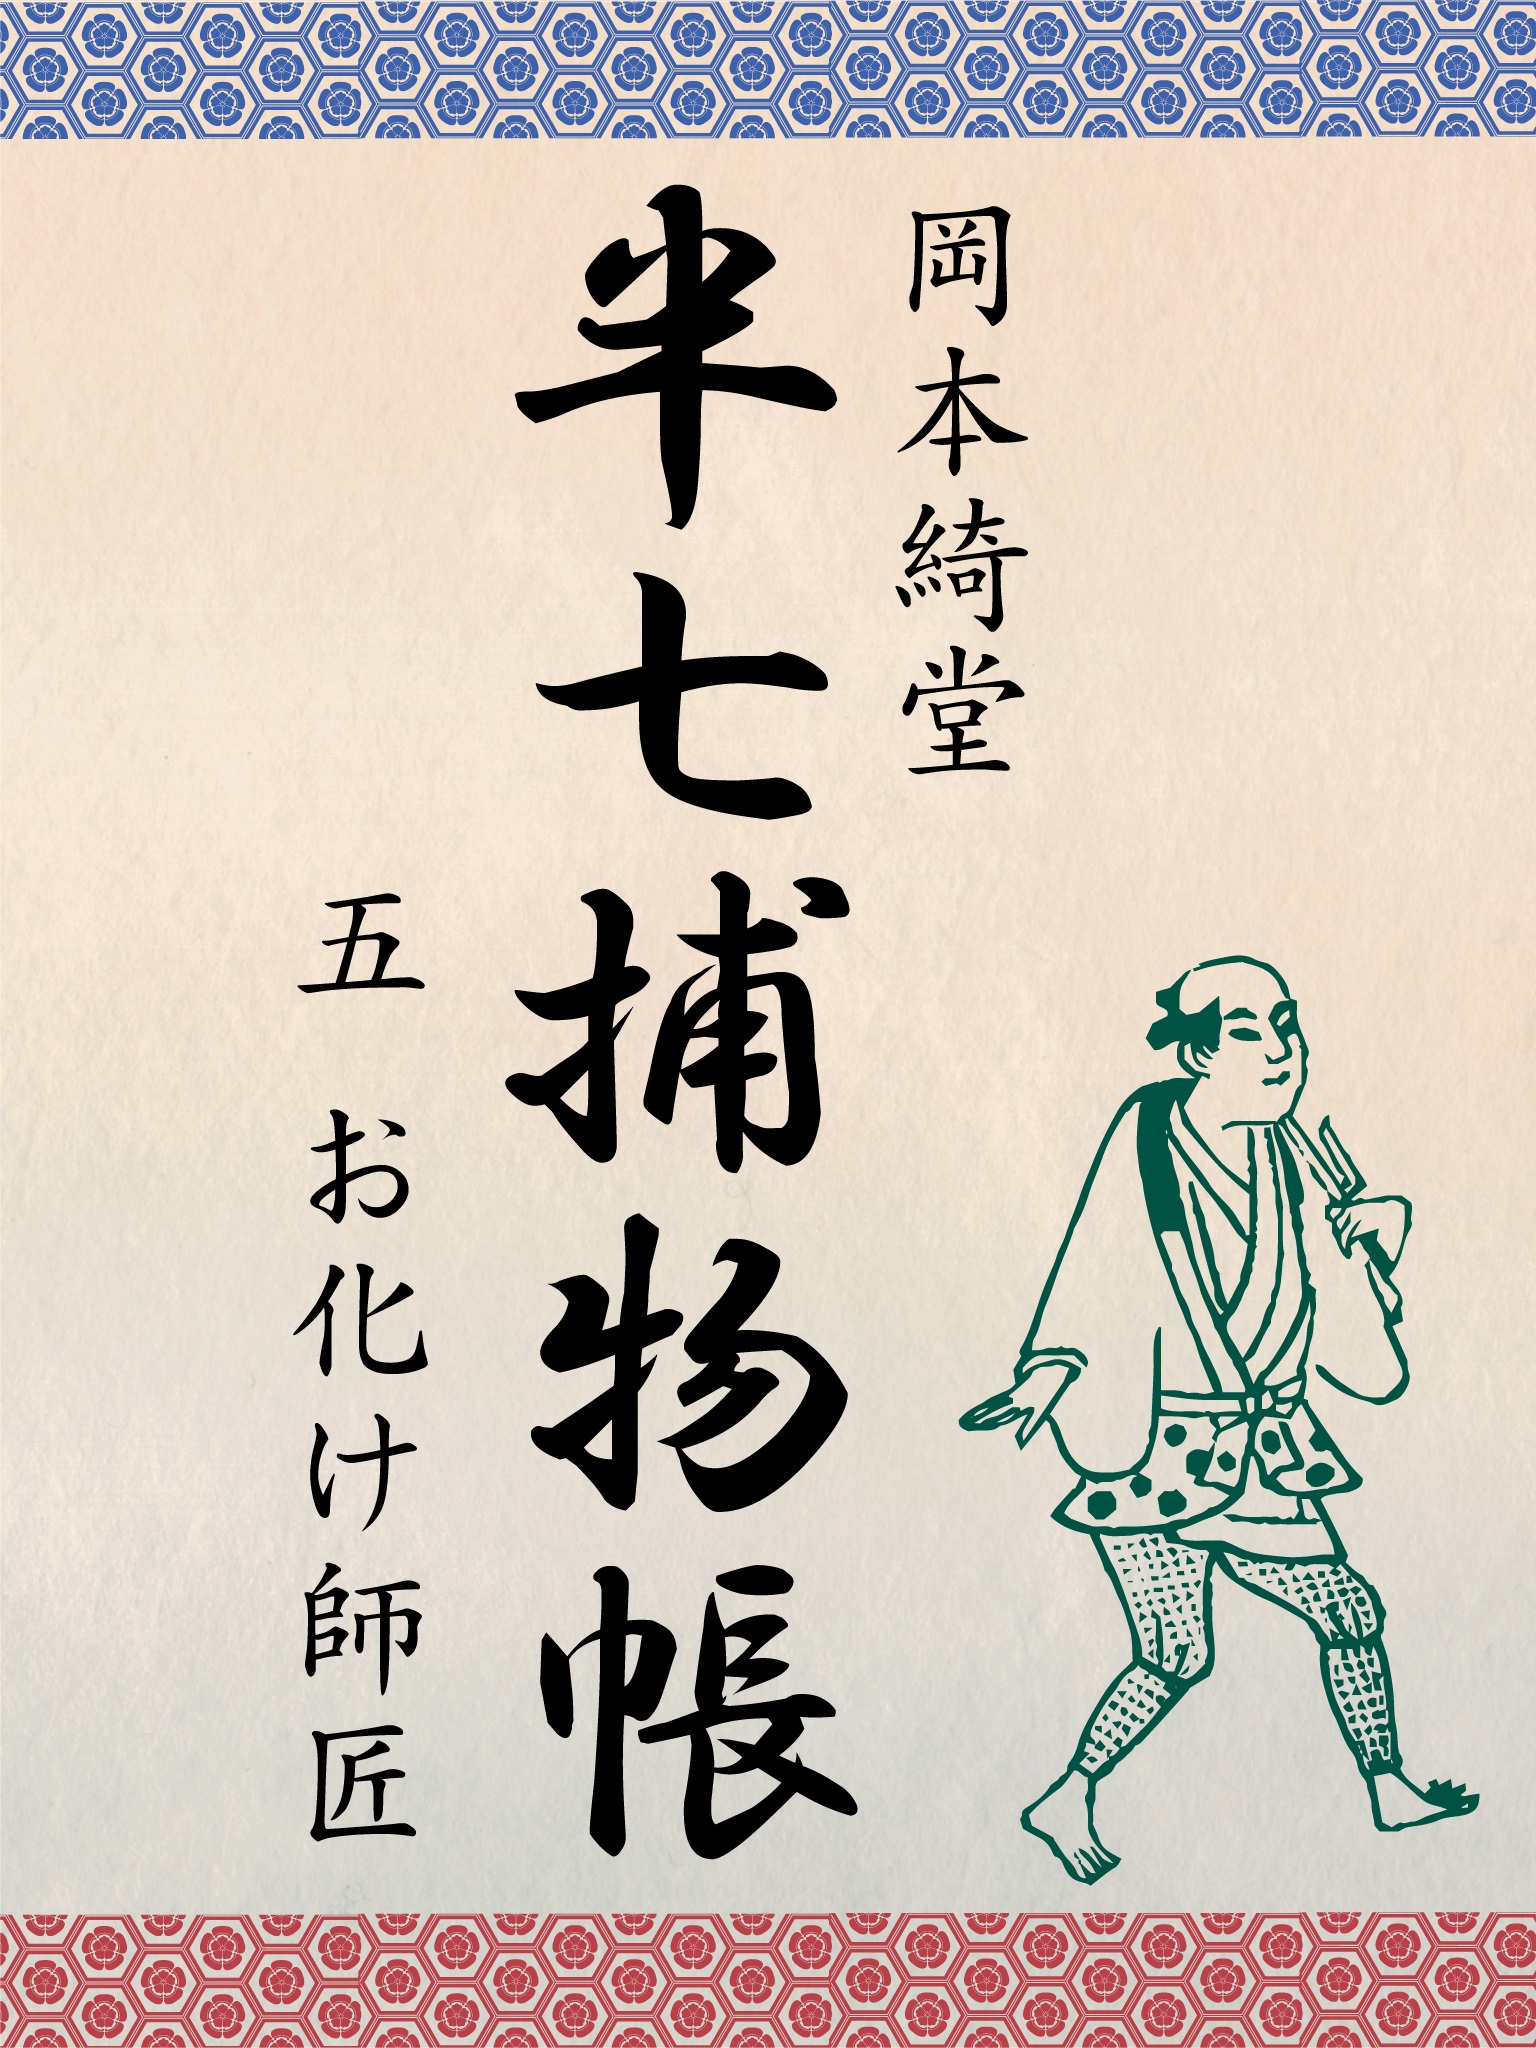 岡本綺堂
半七捕物帳
五 お化け師匠